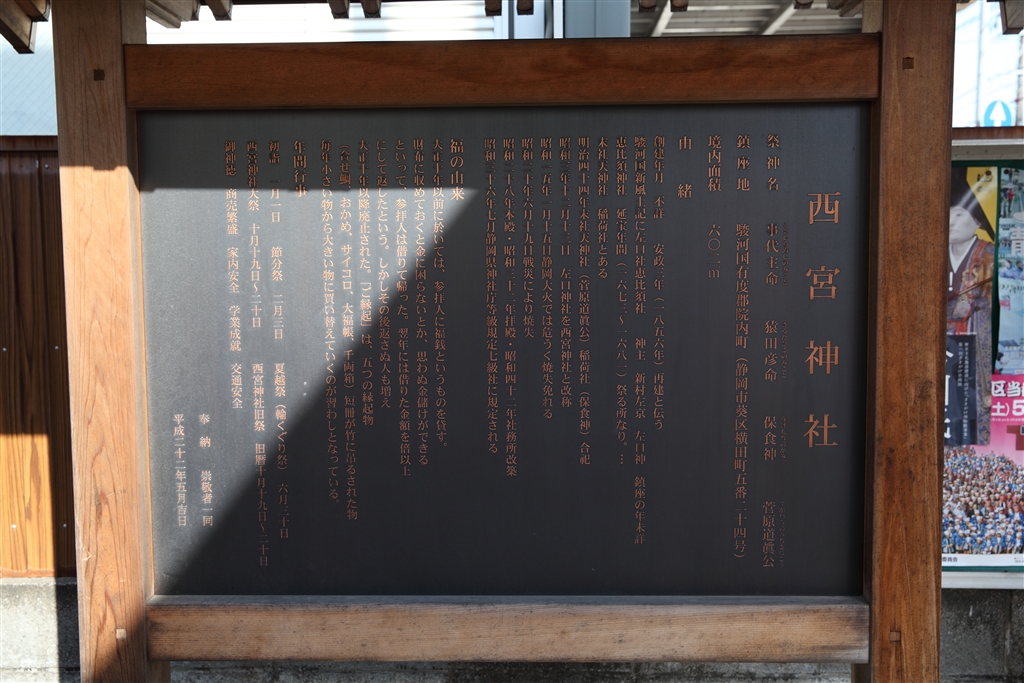 西宮神社
祭神名 事代主命 猿田彦命 保食神 菅原道眞公
鎮座地 駿河国有度郡院内町（静岡市葵区横田町五番二十四号）
境内面積 六〇二㎡
由緒
創建年月 不詳 安政三年（一八五六年）再建と伝う
駿河国新風土記に左口社恵比須社 神主 新村左京 左口神 鎮座の年未詳
恵比須神社 延宝年間（一六七三～一六八一）祭る所なり。…
末社天神社 稲荷社とある
明治四十四年末社天神社（菅原道眞公）稲荷社（保食神）合祀
昭和 年十二月十三日 左口神社を西宮神社と改称
昭和十五年一月十五日静岡大火では危うく焼失免れる
昭和二十年六月十九日戦災により焼失
昭和二十八年本殿・昭和三十二年拝殿・昭和四十二年社務所改築
昭和二十六年七月静岡県神社庁等級規定七級社に規定される
福の由来
大正十年以前に於いては、参拝人に福銭というものを貸す。
財布に収めておくと金に困らないとか、思わぬ金儲けができる
といって、参拝人は借りて帰った。翌年には借りた金額を倍以上
にして返えたという。しかしその後返さぬ人も増え
大正十年以降廃止された。「ご縁起」は、五つの縁起物
（合せ鯛、おかめ、サイコロ、大福帳、千両箱）短冊が竹に吊るされた物
毎年小さな物から大きい物に買い替えていくのが習わしとなっている。
年間行事
初詣 一月一日 節分祭 二月三日 夏越祭（輪くぐり祭） 六月三十日
西宮神社大祭 十月十九日～二十日 西宮神社旧祭 旧暦十月十九日～二十日
御神徳 商売繁盛 家内安全 学業成就 交通安全
奉納 崇敬者一同
平成二十二年五月吉日